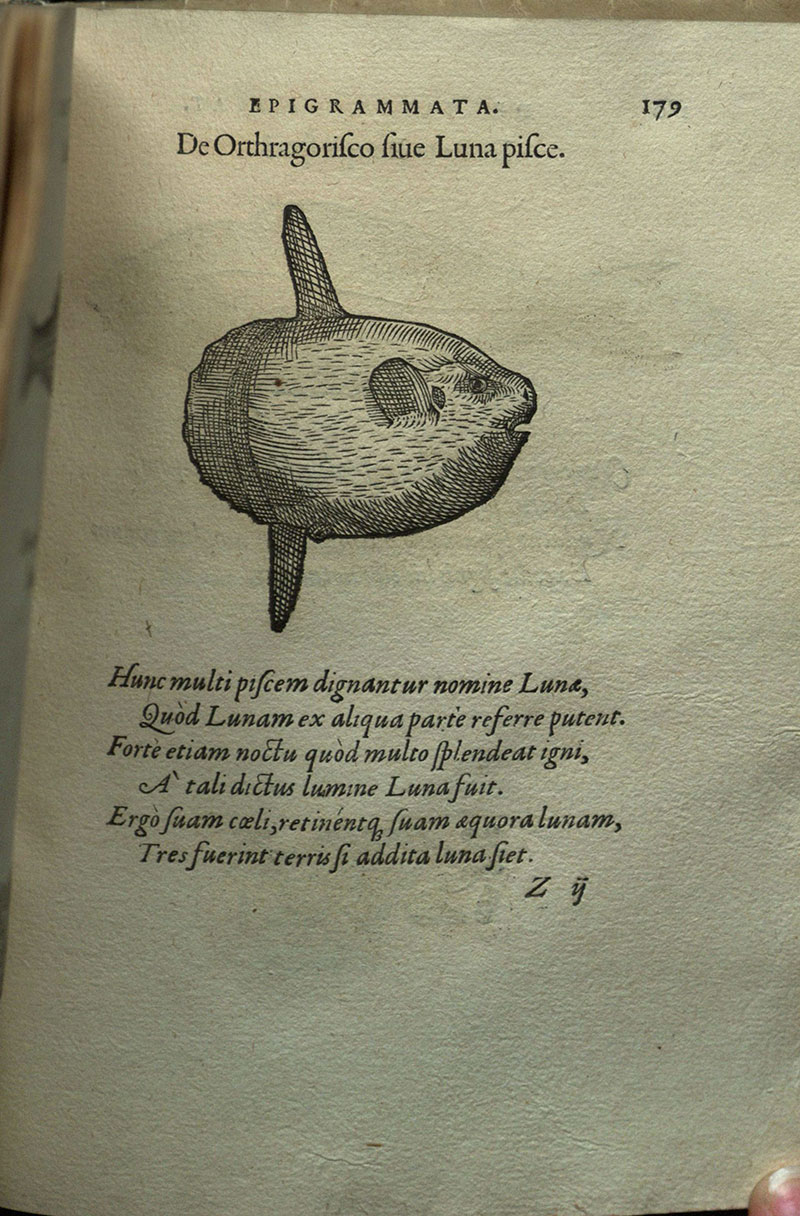 EPIGRAMMATA. 179
De Orthragoriſco ſiue Luna piſce.
Hunc multi piſcem dignantur nomine Lunæ,
Quòd Lunam ex aliqua parte referre putent.
Forte etiam noctu quòd multo ſplendeat igni,
A` tali dictus lumine Luna fuit.
Ergò ſuam cœli, retinéntq; ſuam æquora lunam,
Tres fuerint terris ſi addita luna ſiet.
Z ij